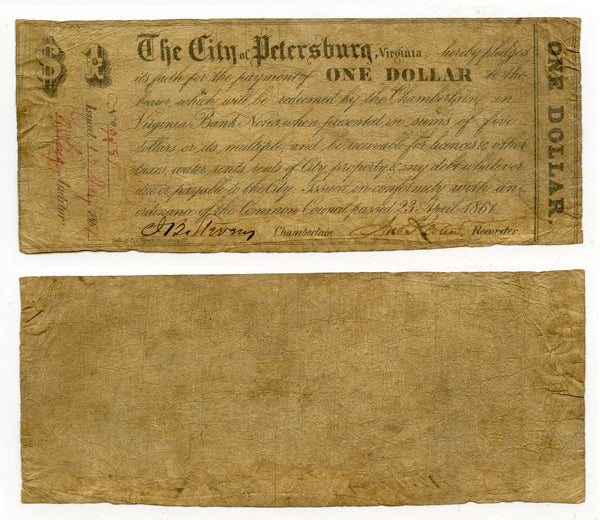 The City of Petersburg, Virginia, hereby pledges
its faith for the payment of ONE DOLLAR to the
bearer which will be redeemed by the Chamberlain in
Virginia Bank Notes when presented in sums of five
dollars or its multiple, and be receivable for licences, & other
taxes, water rents, rents of City property & any debt whatever
due or payable to the City. Issued in conformity with an
ordinance of the Common Council, passed 23 April 1861
Chamberlain Recorder.
$ 1
No
Issued 18 May 1861
for Auditor
ONE DOLLAR.